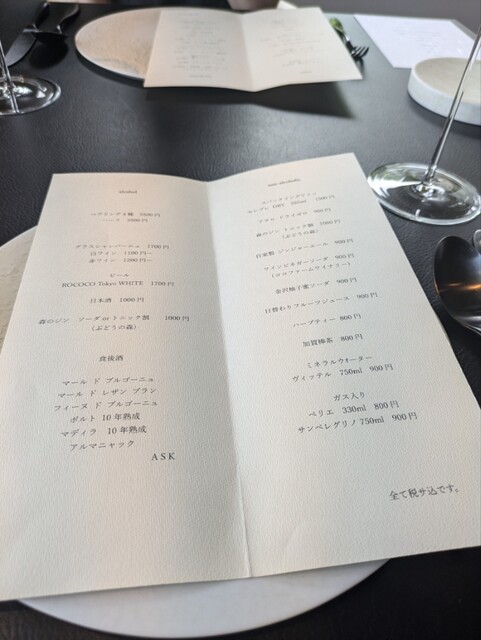 alcohol
ペアリング 4種 5500円
グラスシャンパーニュ 1700円
白ワイン 1100円~
赤ワイン 1200円~
ビール
ROCOCO Tokyo WHITE 1700円
日本酒 1000円
森のジン ソーダ or トニック割 1000円
(ぶどうの森)
食後酒
マール ド ブルゴーニュ
マール ド レザン ブラン
フィーヌ ド ブルゴーニュ
ポルト 10年熟成
マディラ 10年熟成
アルマニャック
ASK
non-alcoholic
スパークリングワイン
900円
森のジン トニック割 1000円
(ぶどうの森)
自家製 ジンジャーエール 900円
ワインビネガーソーダ 900円
(ココファームワイナリー)
金沢柚子蜜ソーダ 900円
日替わりフルーツジュース 900円
ハーブティー 800円
加賀棒茶 800円
ミネラルウォーター
ヴィッテル 750ml 900円
ガス入り
ペリエ 330ml 800円
サンペレグリノ 750ml 900円
全て税サ込です。